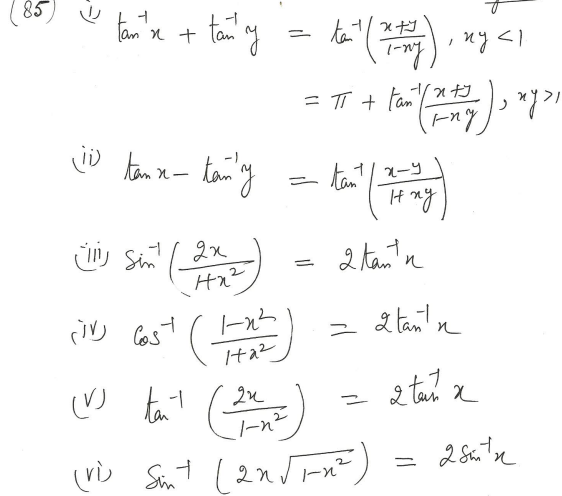 (85) (i) tan⁻¹x + tan⁻¹y = tan⁻¹((x+y)/(1-xy)), xy < 1
= π + tan⁻¹((x+y)/(1-xy)), xy > 1
(ii) tan x - tan⁻¹y = tan⁻¹((x-y)/(1+xy))
(iii) sin⁻¹(2x/(1+x²)) = 2tan⁻¹x
(iv) cos⁻¹((1-x²)/(1+x²)) = 2tan⁻¹x
(v) tan⁻¹(2x/(1-x²)) = 2tan⁻¹x
(vi) sin⁻¹(2x√(1-x²)) = 2sin⁻¹x